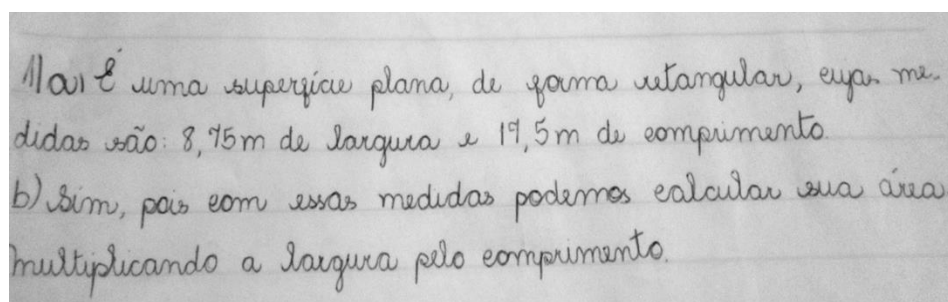 1)a) É uma superfície plana, de forma retangular, cujas me-
didas são: 8,75m de largura e 17,5m de comprimento.
b) Sim, pois com essas medidas podemos calcular sua área
multiplicando a largura pelo comprimento.